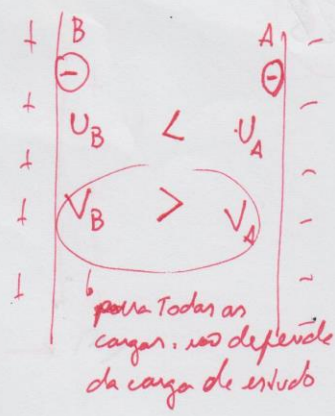 + B A -
⊖ ⊖
+ U_B < U_A -
+ V_B > V_A -
+ -
para Todas as
cargas. não depende
da carga de estudo